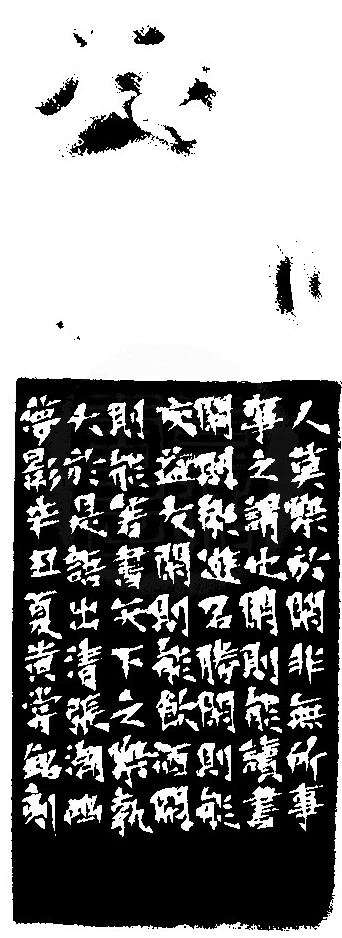 人莫樂於閒非無所事
事之謂也閒則能讀書
閒則能遊名勝閒則能
交益友閒則能飲酒閒
則能著書天下之樂孰
大於是語出清張潮幽
夢影辛丑夏黃嘗銘刻